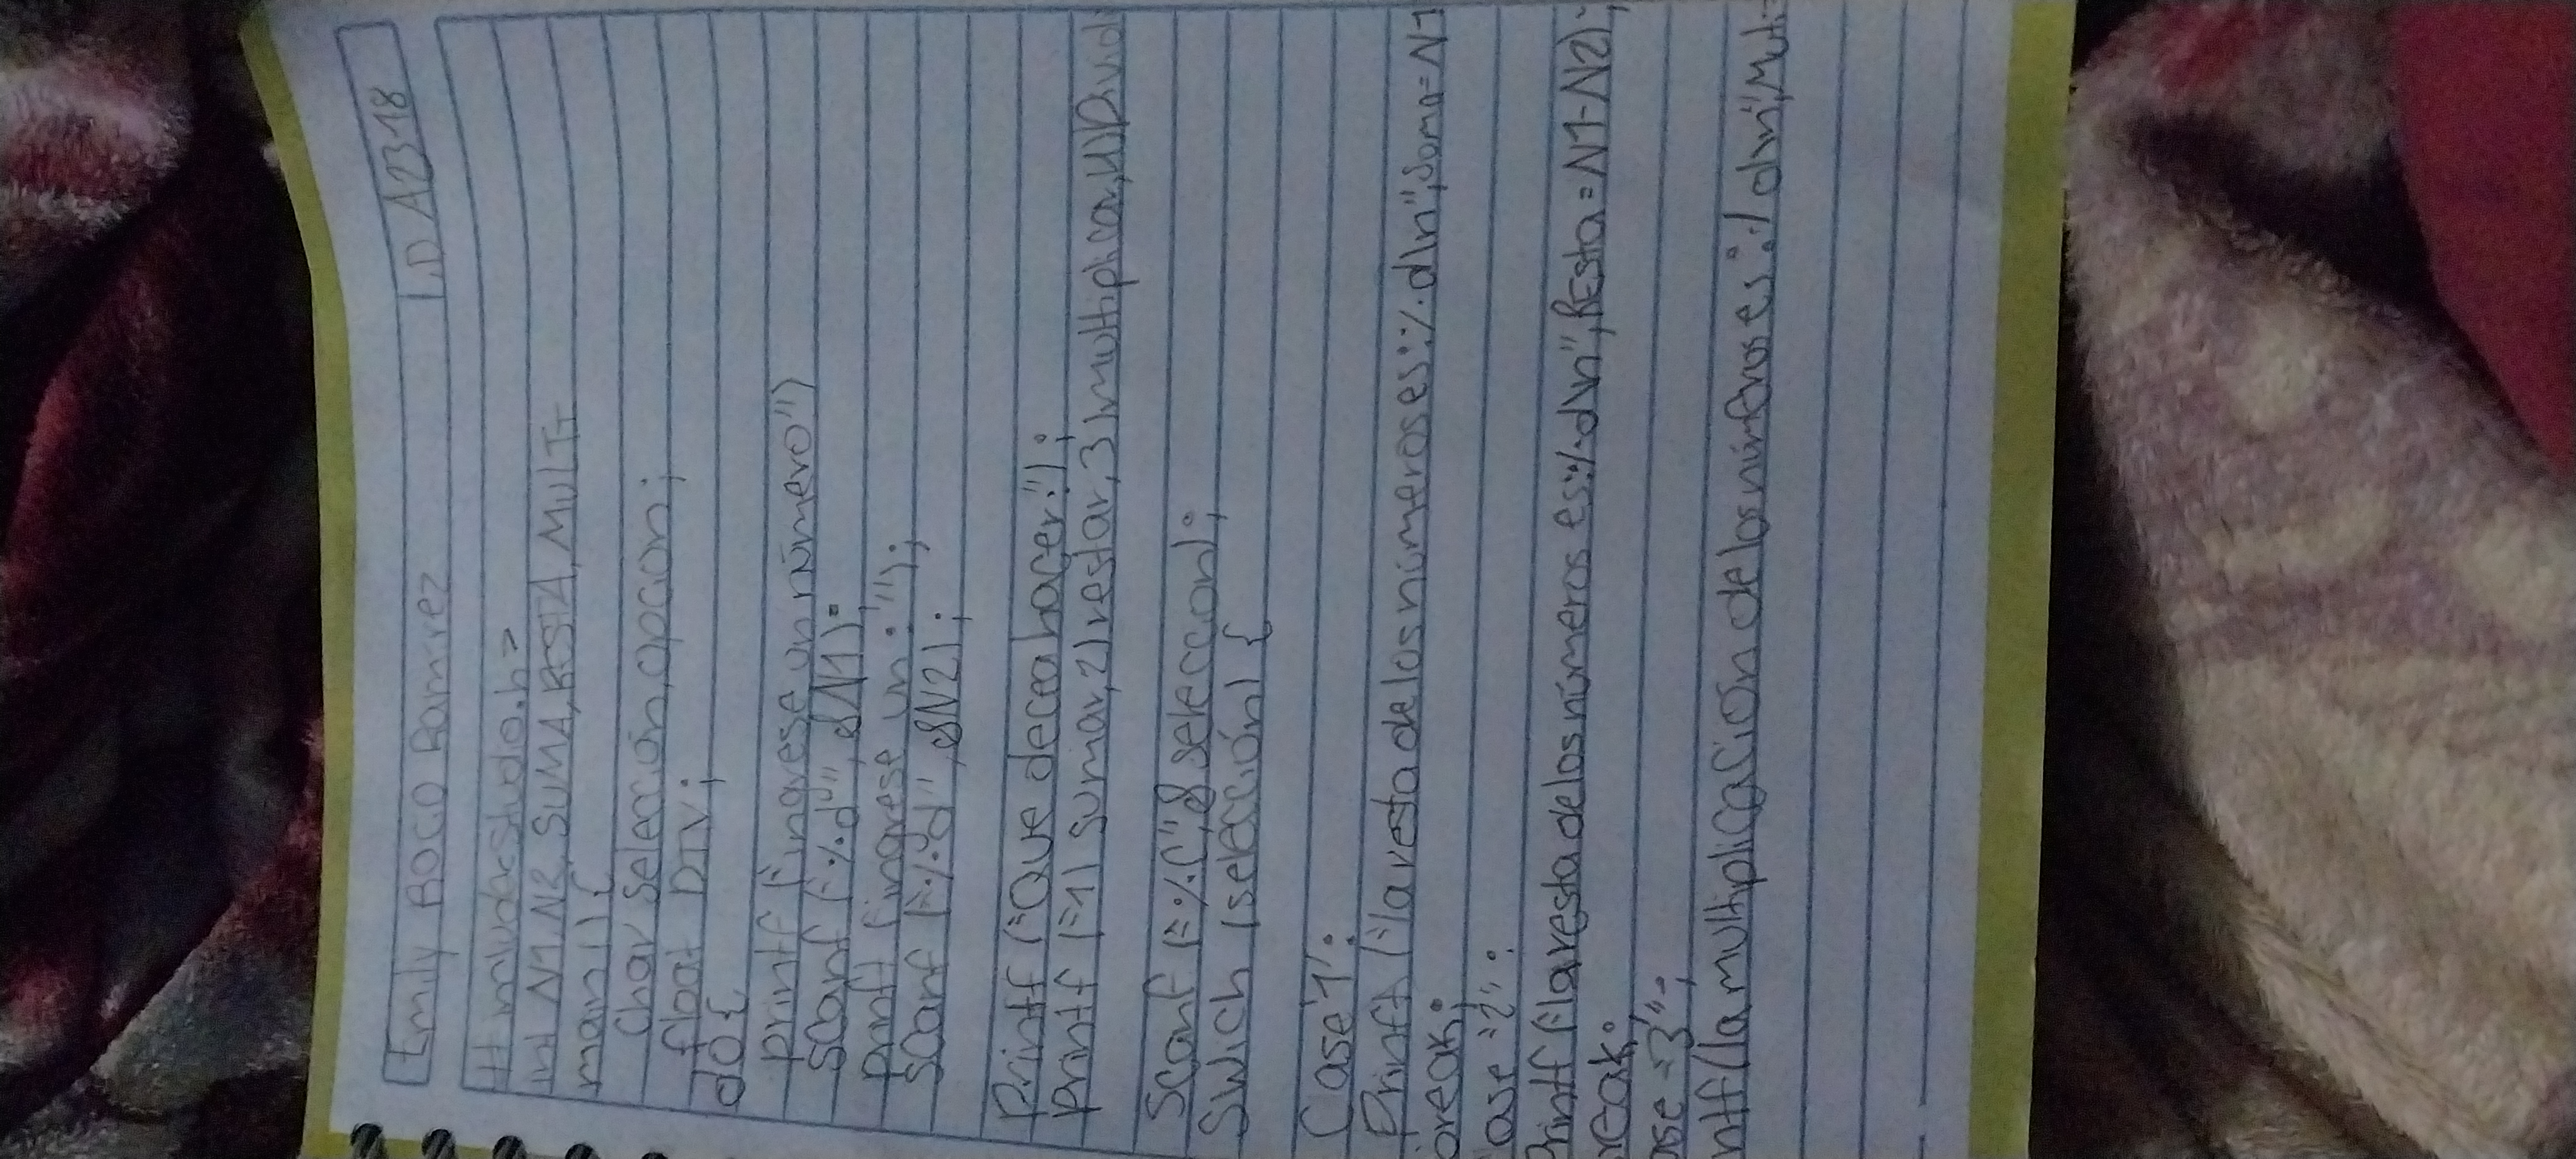 Emily ROCIO Ramirez I.D A23118
# include<Studio.h>
int N1, N2, SUMA, RESTA, MULTI
main () {
Char Selección, opcion;
float DIV;
do {
printf ("ingrese un número")
scanf ("%d", &N1);
printf (ingrese un:"");
scanf ("%d", &N2);
printf ("Que decea hacer:");
printf ("1) Sumar, 2) restar, 3) multiplicar, 4) Divid
Scanf ("%C", & seleccon);
Swich (selección) {
Case '1':
Printf ("la resta de los números es:%d\n", Suma=N1
break;
ase "2":
Printf ("la resta de los números es:%d\n", Resta=N1-N2);
reak;
ase "3":
ntf(la multiplicación de los números es:%d\n", Multi=